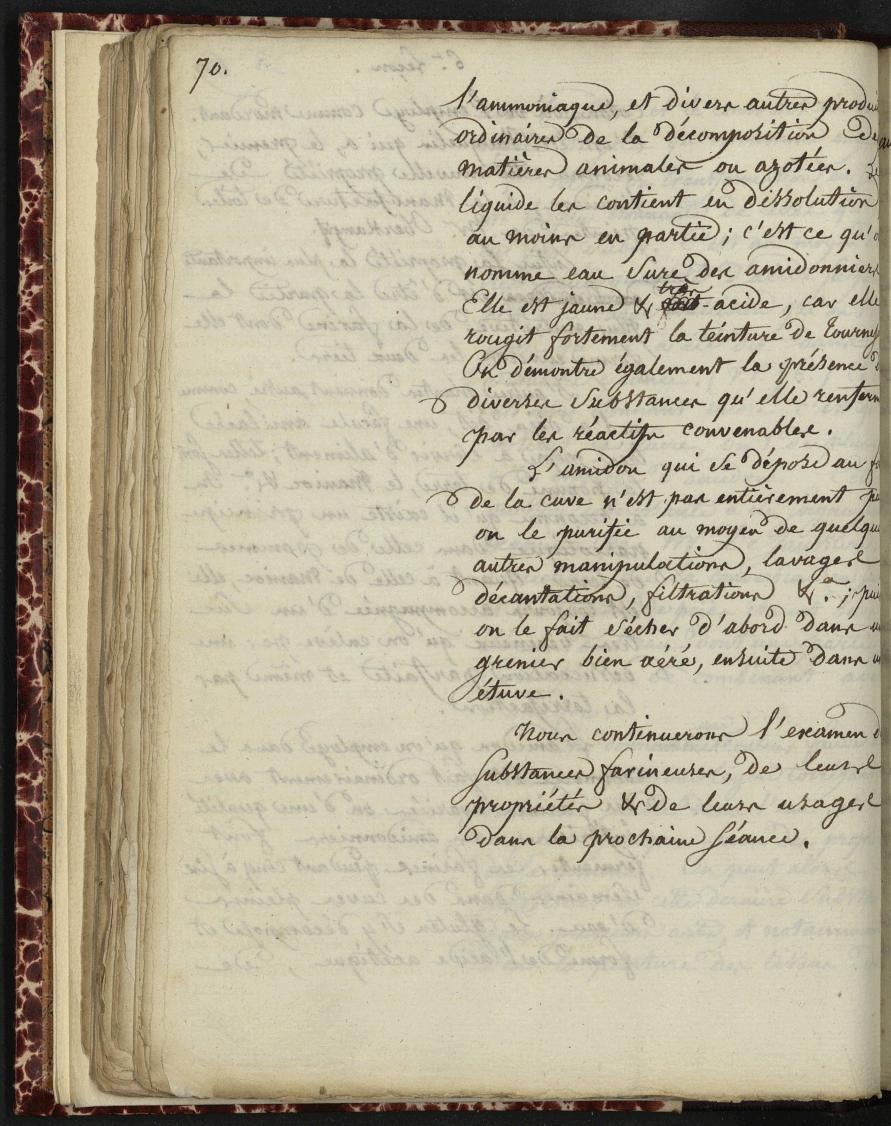 70.
l'ammoniaque, et divers autres produi
ordinaires de la décomposition des
matières animales ou azotées. Le
liquide les contient en dissolution
au moins en partie ; c'est ce qu'o
nomme eau sure des amidonniers
Elle est jaune & très acide, car elle
rougit fortement la teinture de tourne
On démontre également la présence d
diverses substances qu'elle renferm
par les réactifs convenables.
L'amidon qui se dépose au f
de la cuve n'est pas entièrement pu
on le purifie au moyen de quelqu
autres manipulations, lavages
décantations, filtrations &.a ; pui
on le fait sécher d'abord dans u
grenier bien aéré, ensuite dans u
étuve.
Nous continuerons l'examen d
substances farineuses, de leurs
propriétés & de leurs usages
dans la prochaine séance.